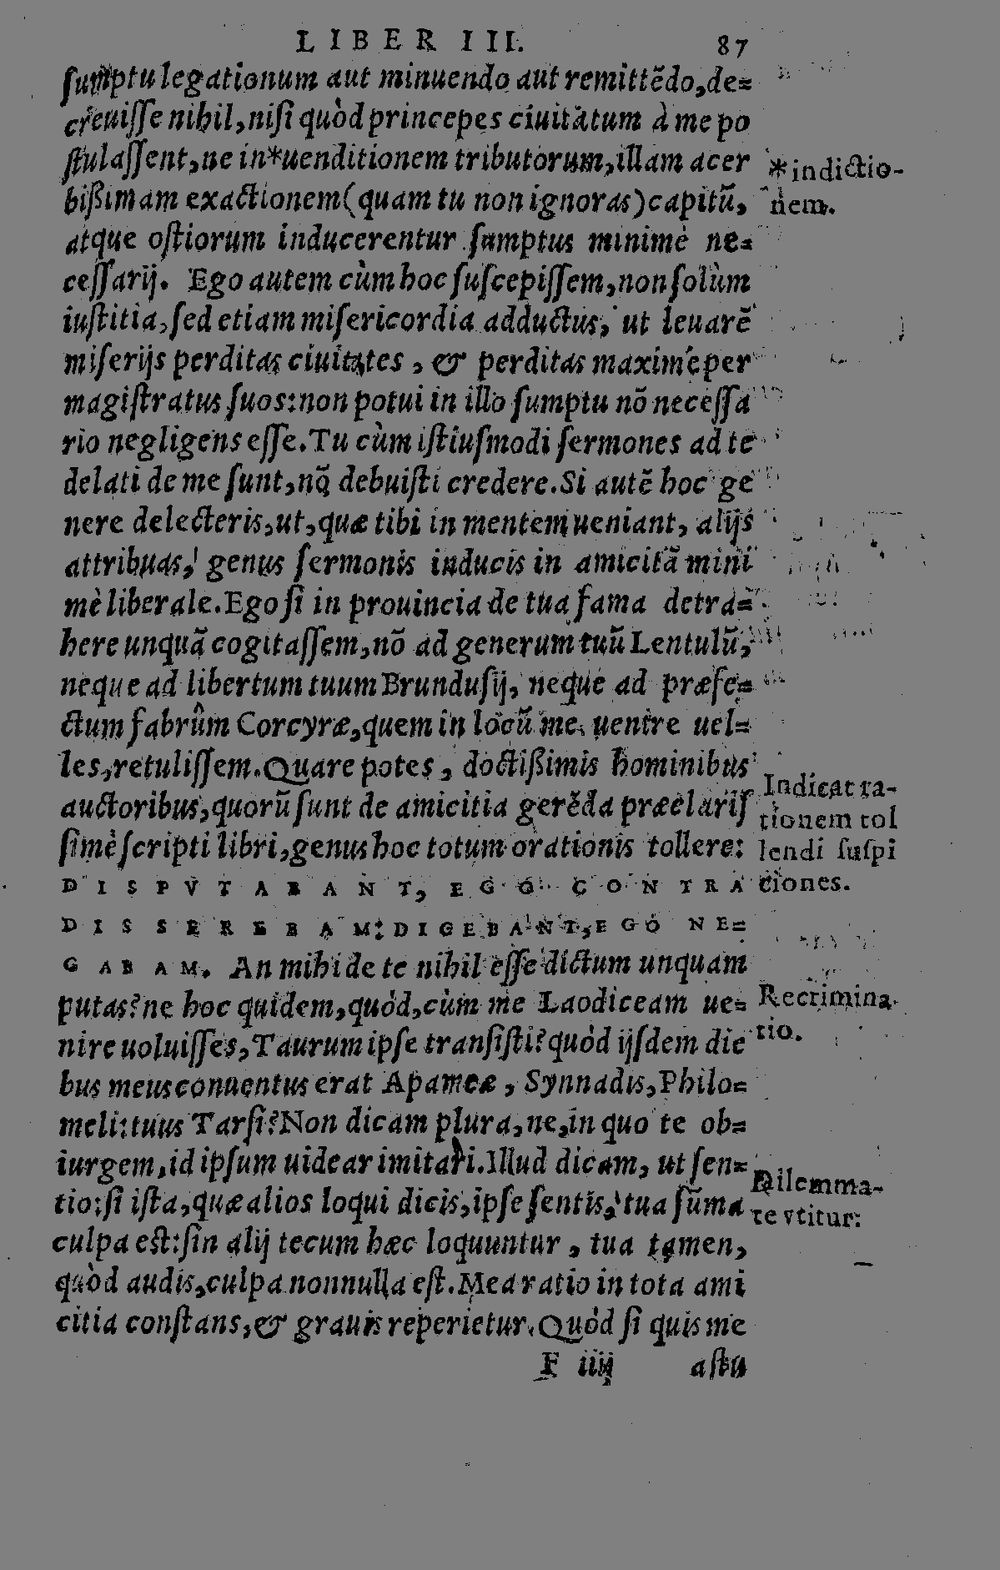 LIBER III. 87
ſumptu legationum aut minuendo aut remittẽdo, de=
creuiſſe nihil, niſi quòd principes ciuitatum à me po
ſtulaſſent, ne in *uenditionem tributorum, illam acer
*indictio-
bißimam exactionem (quam tu non ignoras) capitũ,
nem.
atque oſtiorum inducerentur ſumptus minimè ne=
ceſſarij. Ego autem cùm hoc ſuſcepiſſem, non ſolùm
iuſtitia, ſed etiam miſericordia adductus, ut leuarẽ
miſerijs perditas ciuitates, & perditas maximè per
magiſtratus ſuos: non potui in illo ſumptu nõ neceſſa
rio negligens eſſe. Tu cùm iſtiuſmodi ſermones ad te
delati de me ſunt, nõ debuiſti credere. Si autẽ hoc ge
nere delecteris, ut, quæ tibi in mentem ueniant, alijs
attribuas, genus ſermonis inducis in amicitã mini
mè liberale. Ego ſi in prouincia de tua fama detra=
here unquã cogitaſſem, nõ ad generum tuũ Lentulũ,
neque ad libertum tuum Brunduſij, neque ad præfe=
ctum fabrûm Corcyræ, quem in locũ me uenire uel=
les, retuliſſem. Quare potes, doctißimis hominibus
auctoribus, quorũ ſunt de amicitia gerẽda præclariſ
Indicat ra-
tionem tol
ſimè ſcripti libri, genus hoc totum orationis tollere:
lendi ſuſpi
DISPVTABANT, EGO CONTRA
ciones.
DISSEREBAM: DICEBANT, EGO NE=
GABAM. An mihi de te nihil eſſe dictum unquam
putas? ne hoc quidem, quòd, cùm me Laodiceam ue=
Recrimina-
nire uoluiſſes, Taurum ipſe tranſiſti? quòd ijſdem die
tio.
bus meus conuentus erat Apameæ, Synnadis, Philo=
meli: tuus Tarſi? Non dicam plura, ne, in quo te ob=
iurgem, id ipſum uidear imitari. Illud dicam, ut ſen=
Dilemma-
tio: ſi iſta, quæ alios loqui dicis, ipſe ſentis, tua ſũma
te vtitur:
culpa eſt: ſin alij tecum hæc loquuntur, tua tamen,
quòd audis, culpa nonnulla eſt. Mea ratio in tota ami
citia conſtans, & grauis reperietur. Quòd ſi quis me
F iiij aſtu